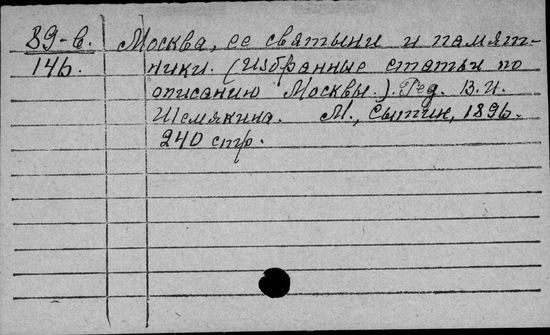 89-в. Москва, ее святыни и памят-
146. ники. (Избранные статьи по
описанию Москвы.). Ред. В.И.
Шемякина. М., Сытин, 1896.
240 стр.